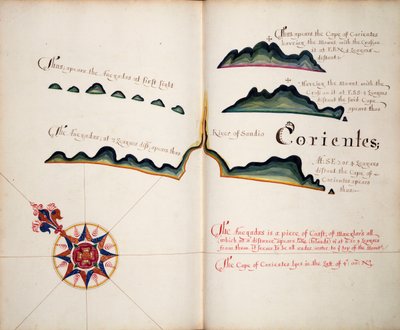 Thus apeare the Anegadas at first sight
The Anegadas; at 2 Leagues dist: apears thus
Thus apears the Cape of Corientes
haveing the Mount with the Cross on
it at E.B.N. 4 Leagues
distant;
Haveing the Mount with the
Cross on it at E.S.E. 4 Leagues
distant the sayd Cape
apears thus
River of Sandio
Corientes;
At: S.E. 2 or 4 Leagues
distant the Cape of
Corientes apears
thus:
The Anegadas is a piece of Coast, of Mangler's all
which at a distance apears like Islands: & at 2 or 3 Leagues
from them it seems to be all under water, to the top of the Mount:
The Cape of Corientes lyes in the Latt. of